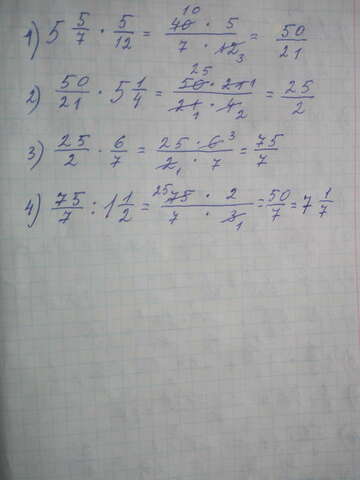 1) 5 5/7 · 5/12 = 40 10 · 5 / 7 · 12 3 = 50/21
2) 50/21 · 5 1/4 = 50 25 · 21 1 / 21 1 · 4 2 = 25/2
3) 25/2 · 6/7 = 25 · 6 3 / 2 1 · 7 = 75/7
4) 75/7 : 1 1/2 = 25 75 · 2 / 7 · 3 1 = 50/7 = 7 1/7